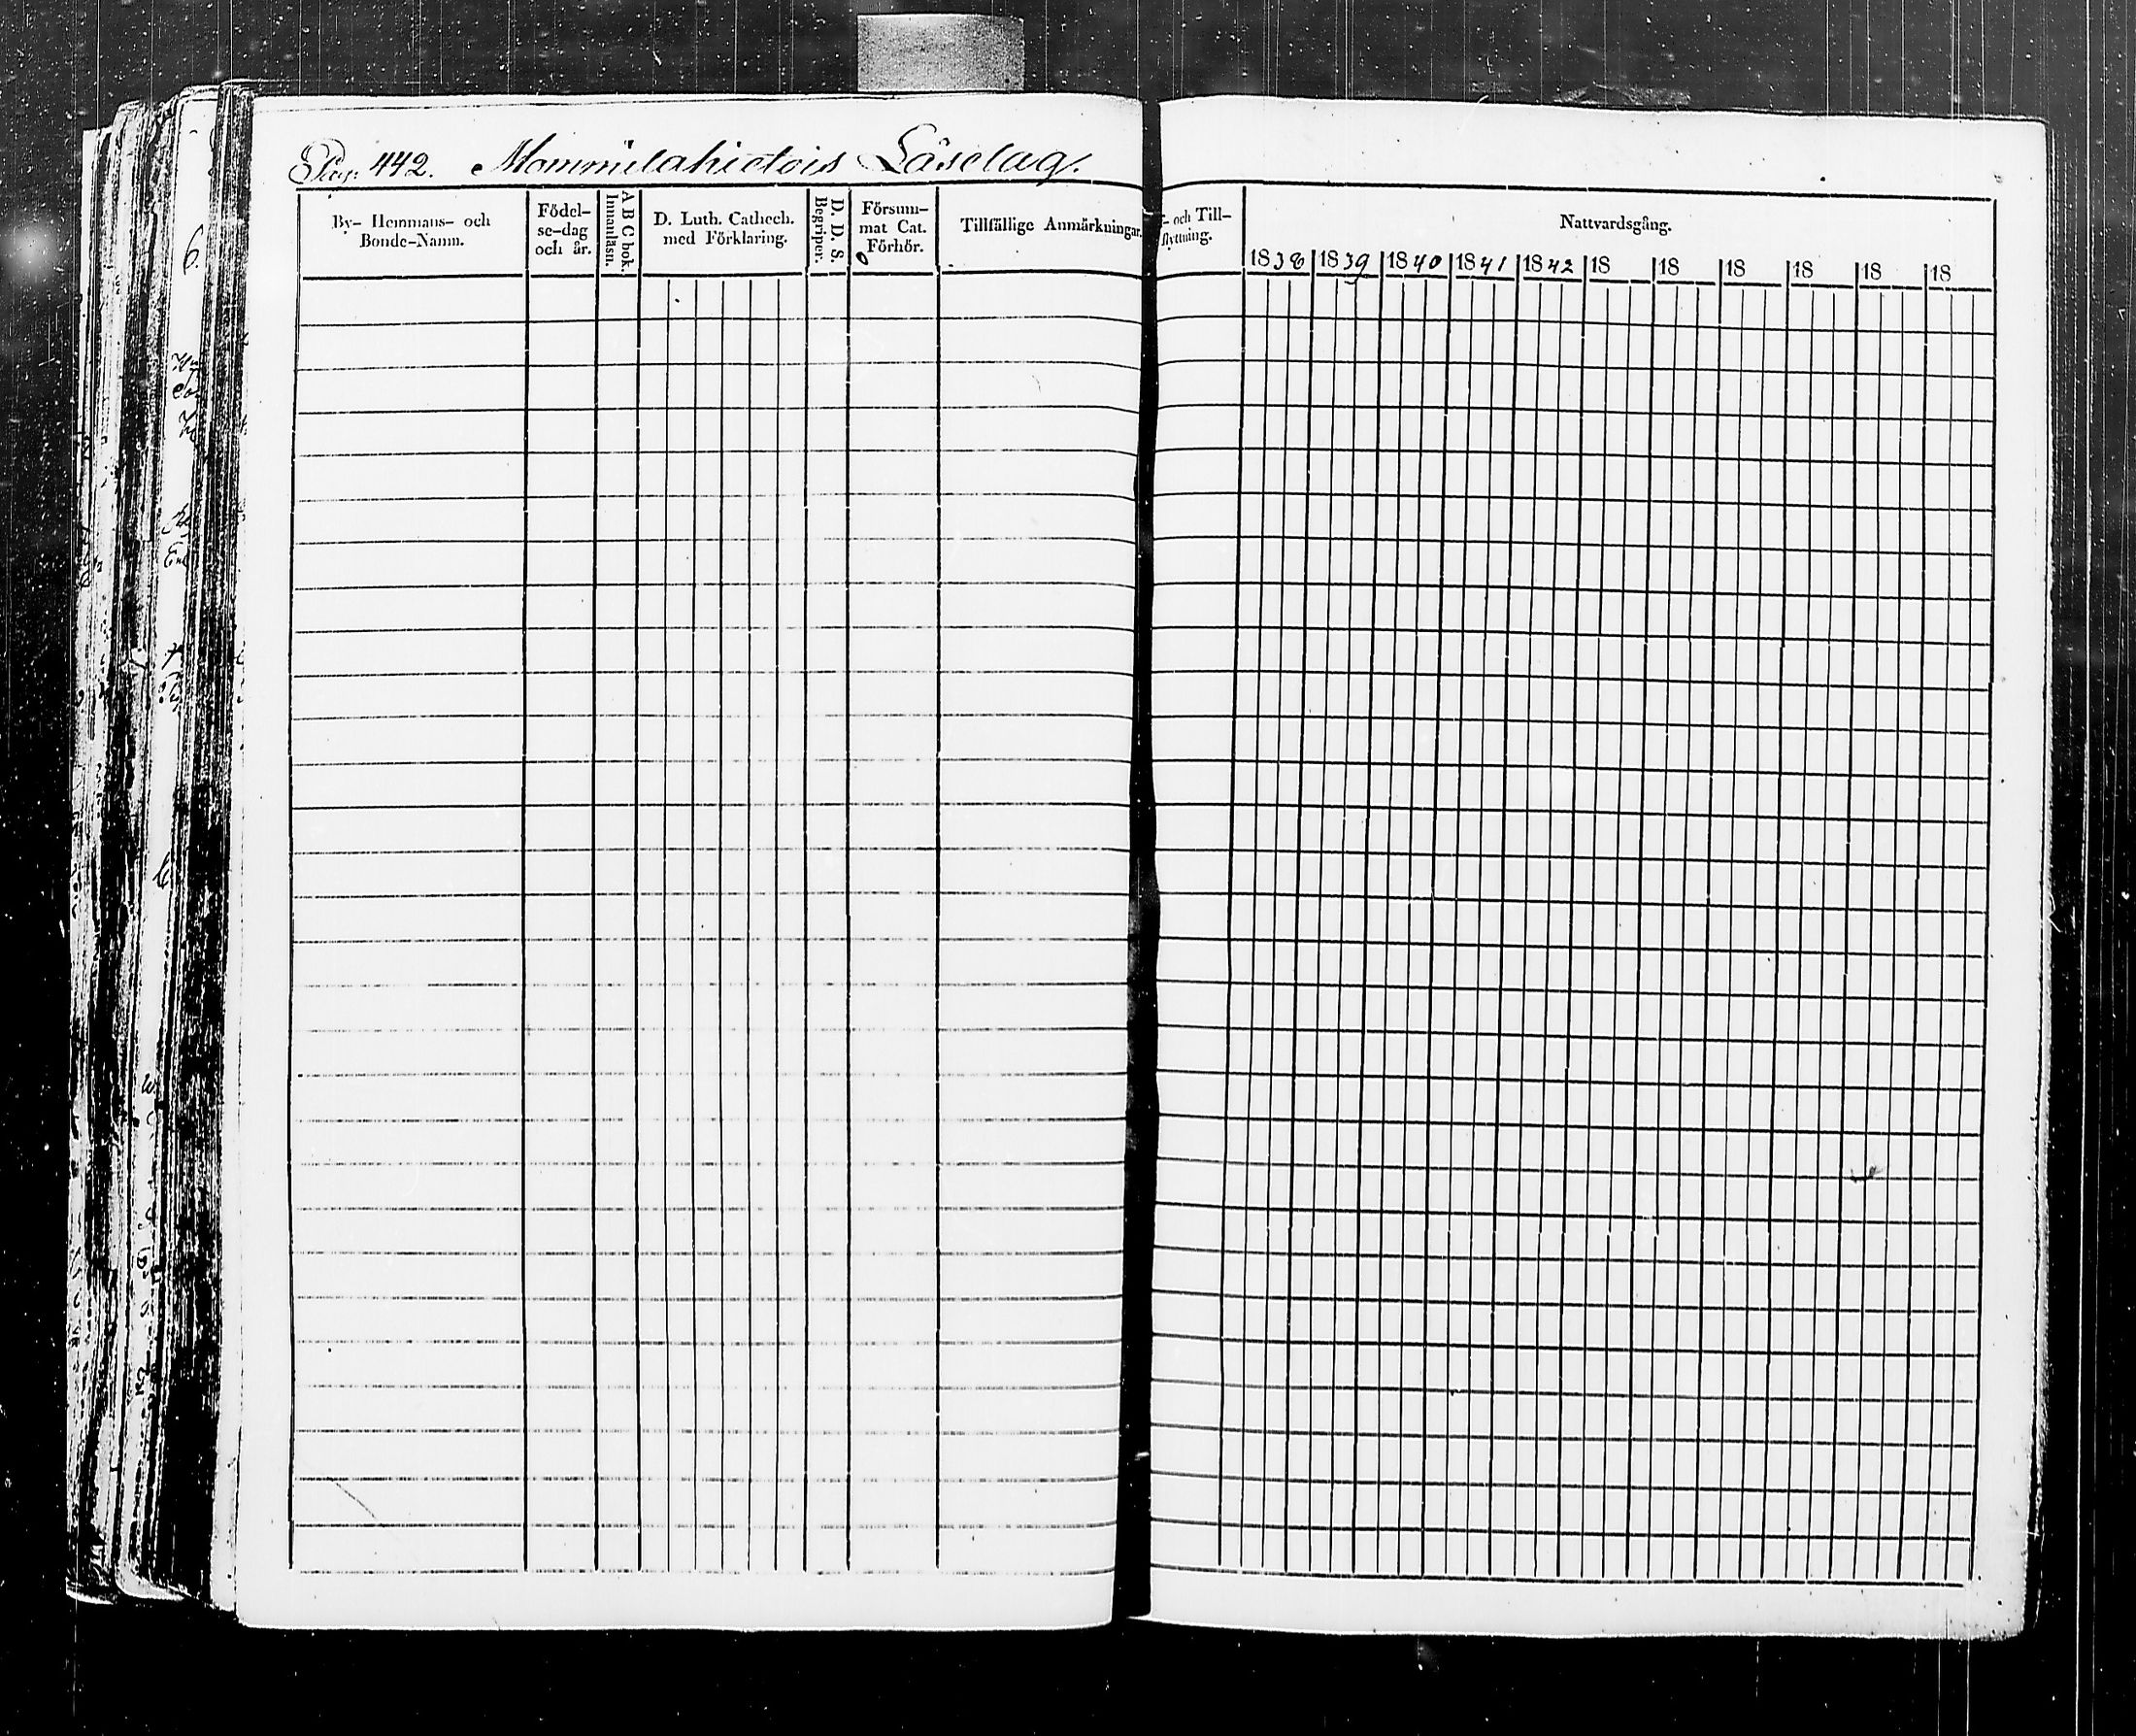 Pag. 442. Mommilahietois Läselag.
By- Hemmans- och
Bonde-Namn.
Födel-
se-dag
och år.
A B C bok.
Innanläsn.
D. Luth. Cathech.
med Förklaring.
D. D. S.
Begriper.
Försum-
mat Cat.
Förhör.
Tillfällige Anmärkningar.
- och Till-
flyttning.
Nattvardsgång.
1838 1839 1840 1841 1842 18 18 18 18 18 18
6.